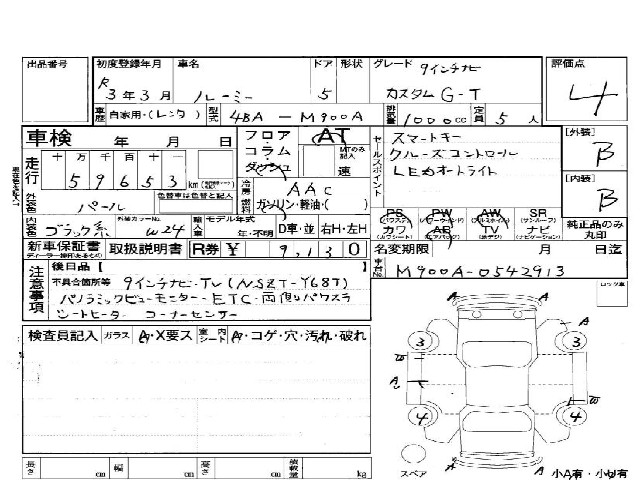 出品番号
初度登録年月 車名 ドア 形状 グレード 9インチナビ 評価点
R 3年3月 ルーミー 5 カスタムG-T 4
車歴 自家用・(レンタ) 型式 4BA-M900A 排気量 1000cc 定員 5人
車検 年 月 日 フロア・コラム・ダッシュ AT セールスポイント スマートキー [外装]
走行 十 万 千 百 十 一 MTのみ記入 速 クルーズコントロール B
59653 km LEDオートライト
冷房 AAC [内装]
外装色 パール 色替車は色替と記入 燃料 ガソリン・軽油・( ) B
PS PW AW SR
(パワステ) (パワーウィンド) (アルミホイル) (サンルーフ)
内装色 ブラック系 外装カラーNo. W24 輸入車 モデル年式 年・不明 D車・並 右H・左H カワ AB TV ナビ 純正品のみ丸印
(カワシート) (エアバッグ) (ナビゲーション)
新車保証書 取扱説明書 R券 ¥ 9,130 名変期限 月 日迄
車台No. M900A-0542913
注意事項 後日品 [
不具合箇所等 9インチナビ・TV(NSZT-Y68T)
パノラミックビューモニター・ETC・両側パワスラ
シートヒーター コーナーセンサー
検査員記入 ガラス A・X要ス 室内シート A・コゲ・穴・汚れ・破れ
A A
A
3 3
W
A
W
4 4
A A
スペア 小A有・小U有
長さ cm 幅 cm 高さ cm 積載量 kg